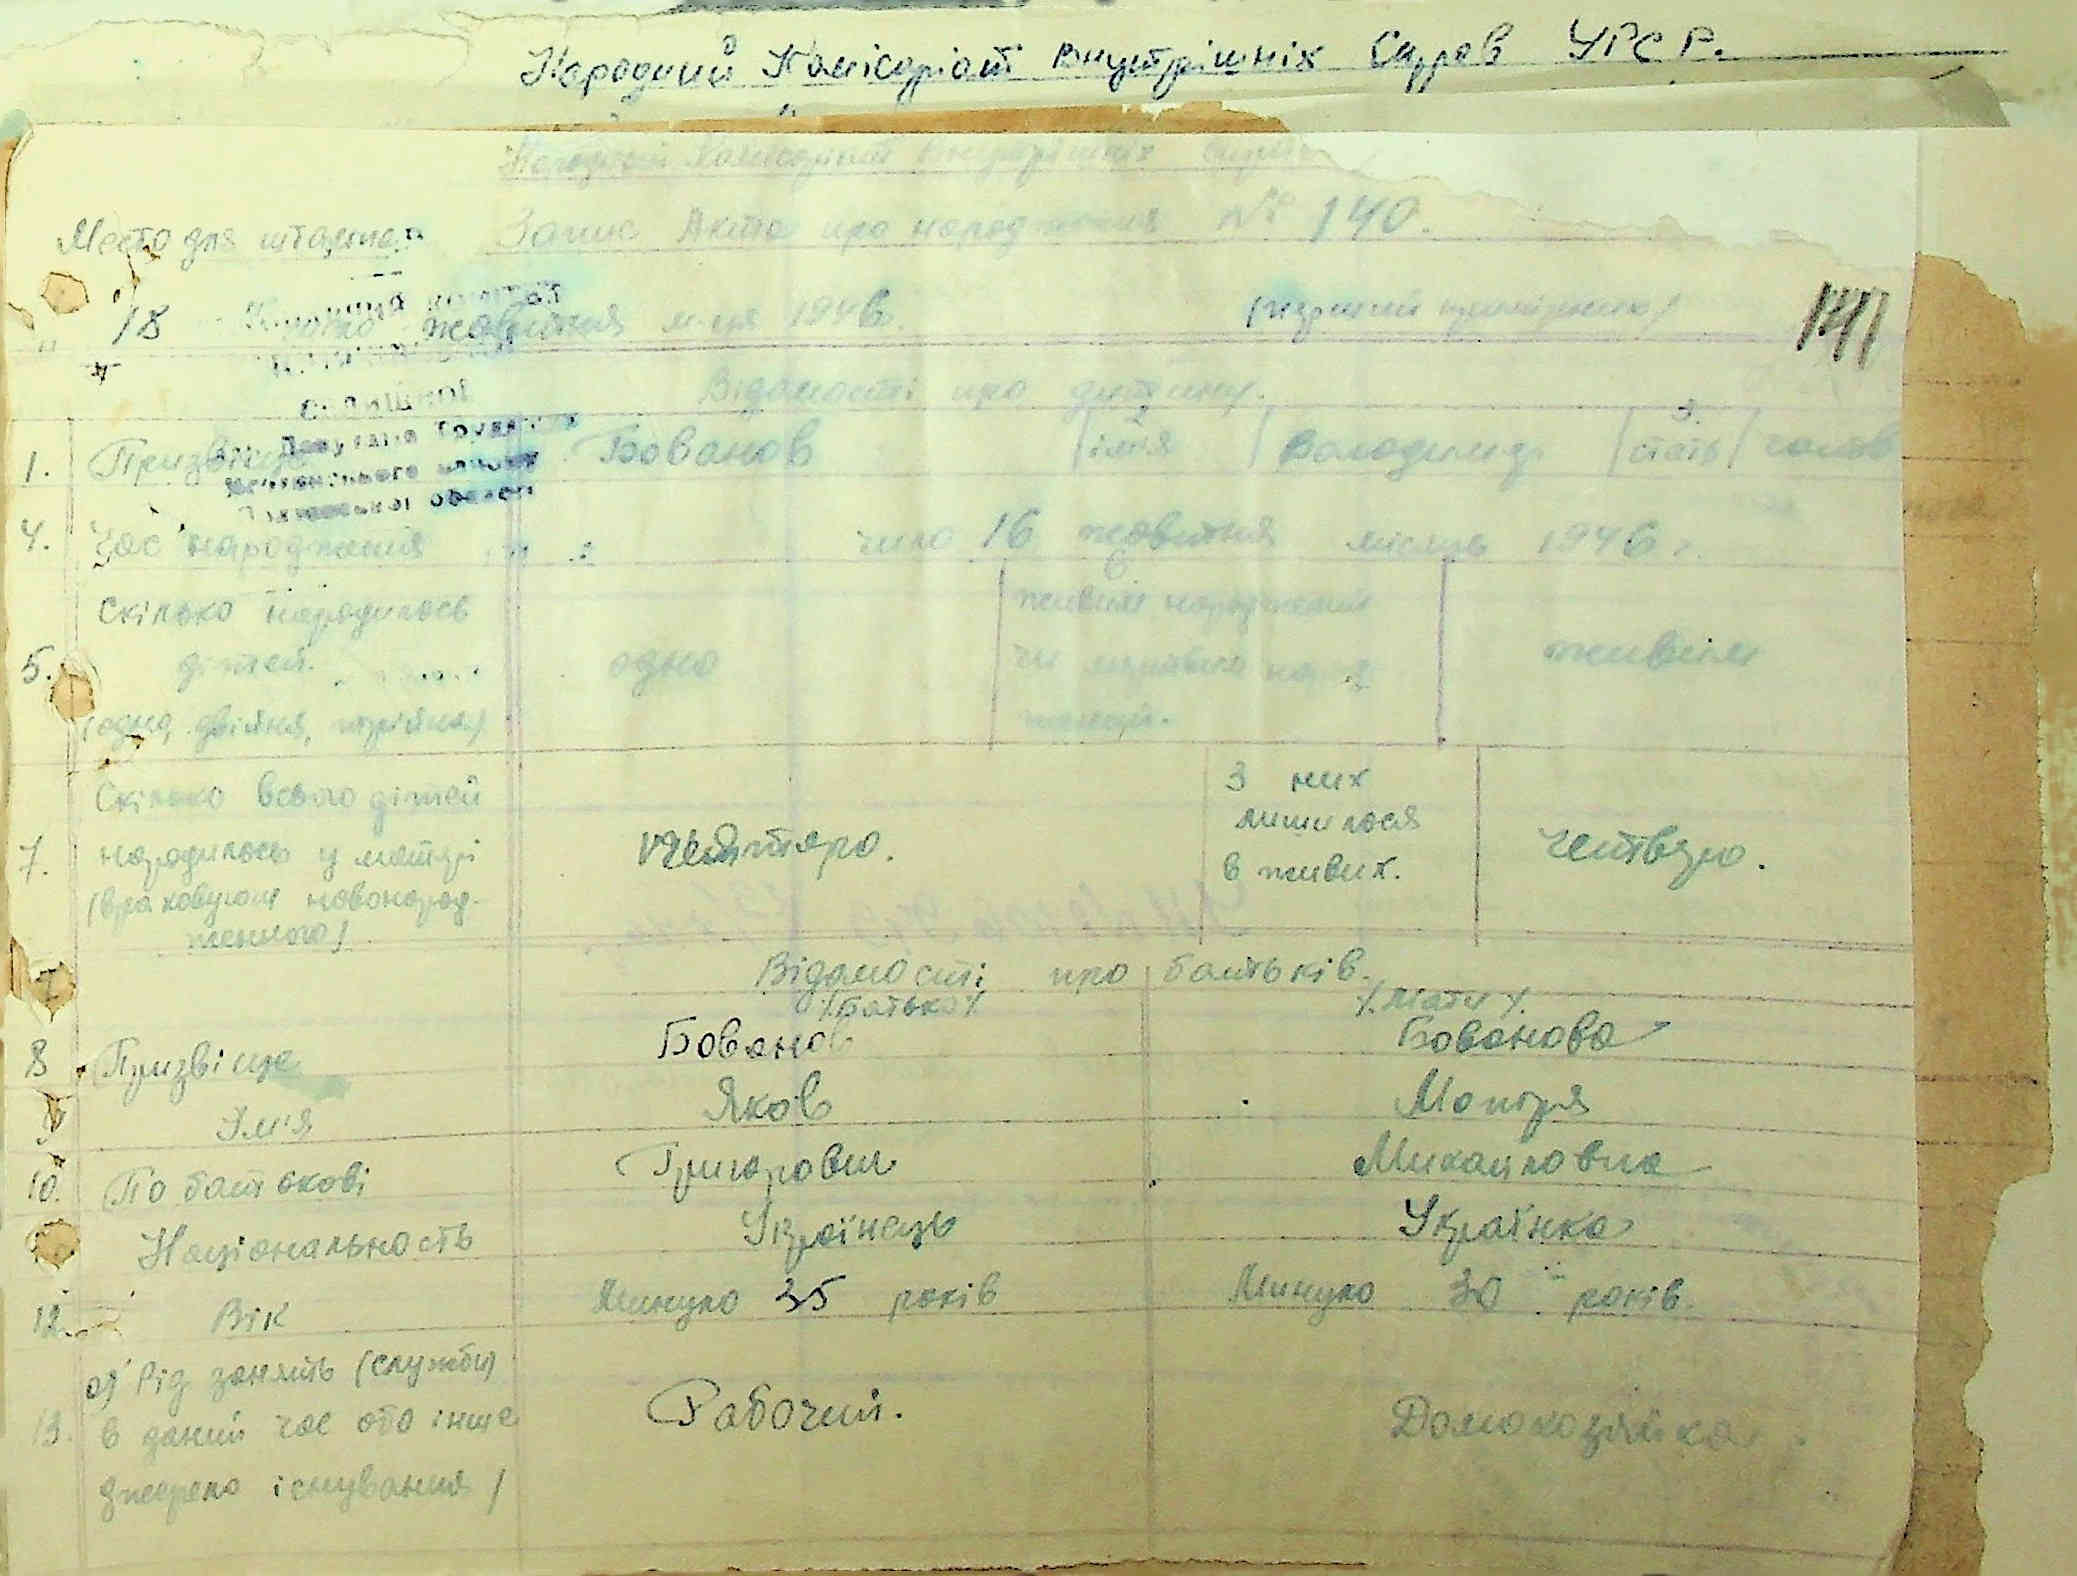 Народний Комісаріат внутрішніх Справ УРСР.
Народний Комісаріат внутрішніх справ
Место для штампа. Запис Акта про народження № 140.
18 жовтня м-ця 1946 (перший примірник) 141
Відомості про дитину.
1. Призвіще Бованов 2 імя Володимир 3. стать чолов
Депутатів Трудящих
області
4. Час народження число 16 жовтня місяць 1946 г.
6
Скілько народилось живим народжений
5. дітей. одно чи мертвим живим
(одна, двійня, трійня)
Скілько всього дітей З них
7. народилось у матері четверо. лишилося четверо.
(враховуючи новонарод- в живих.
женного)
Відомості про батьків.
/Батько/ /Мати/
8 Призвіще Бованов Бованова
9 Імя Яков Мотря
10. По батькові Григорович Михайловна
Національность Українець Українка
12. Вік Минуло 35 років Минуло 30 років.
а) Рід занять (служби)
13. в даний час або інше Рабочий. Домохозяйка.
джерело існування)